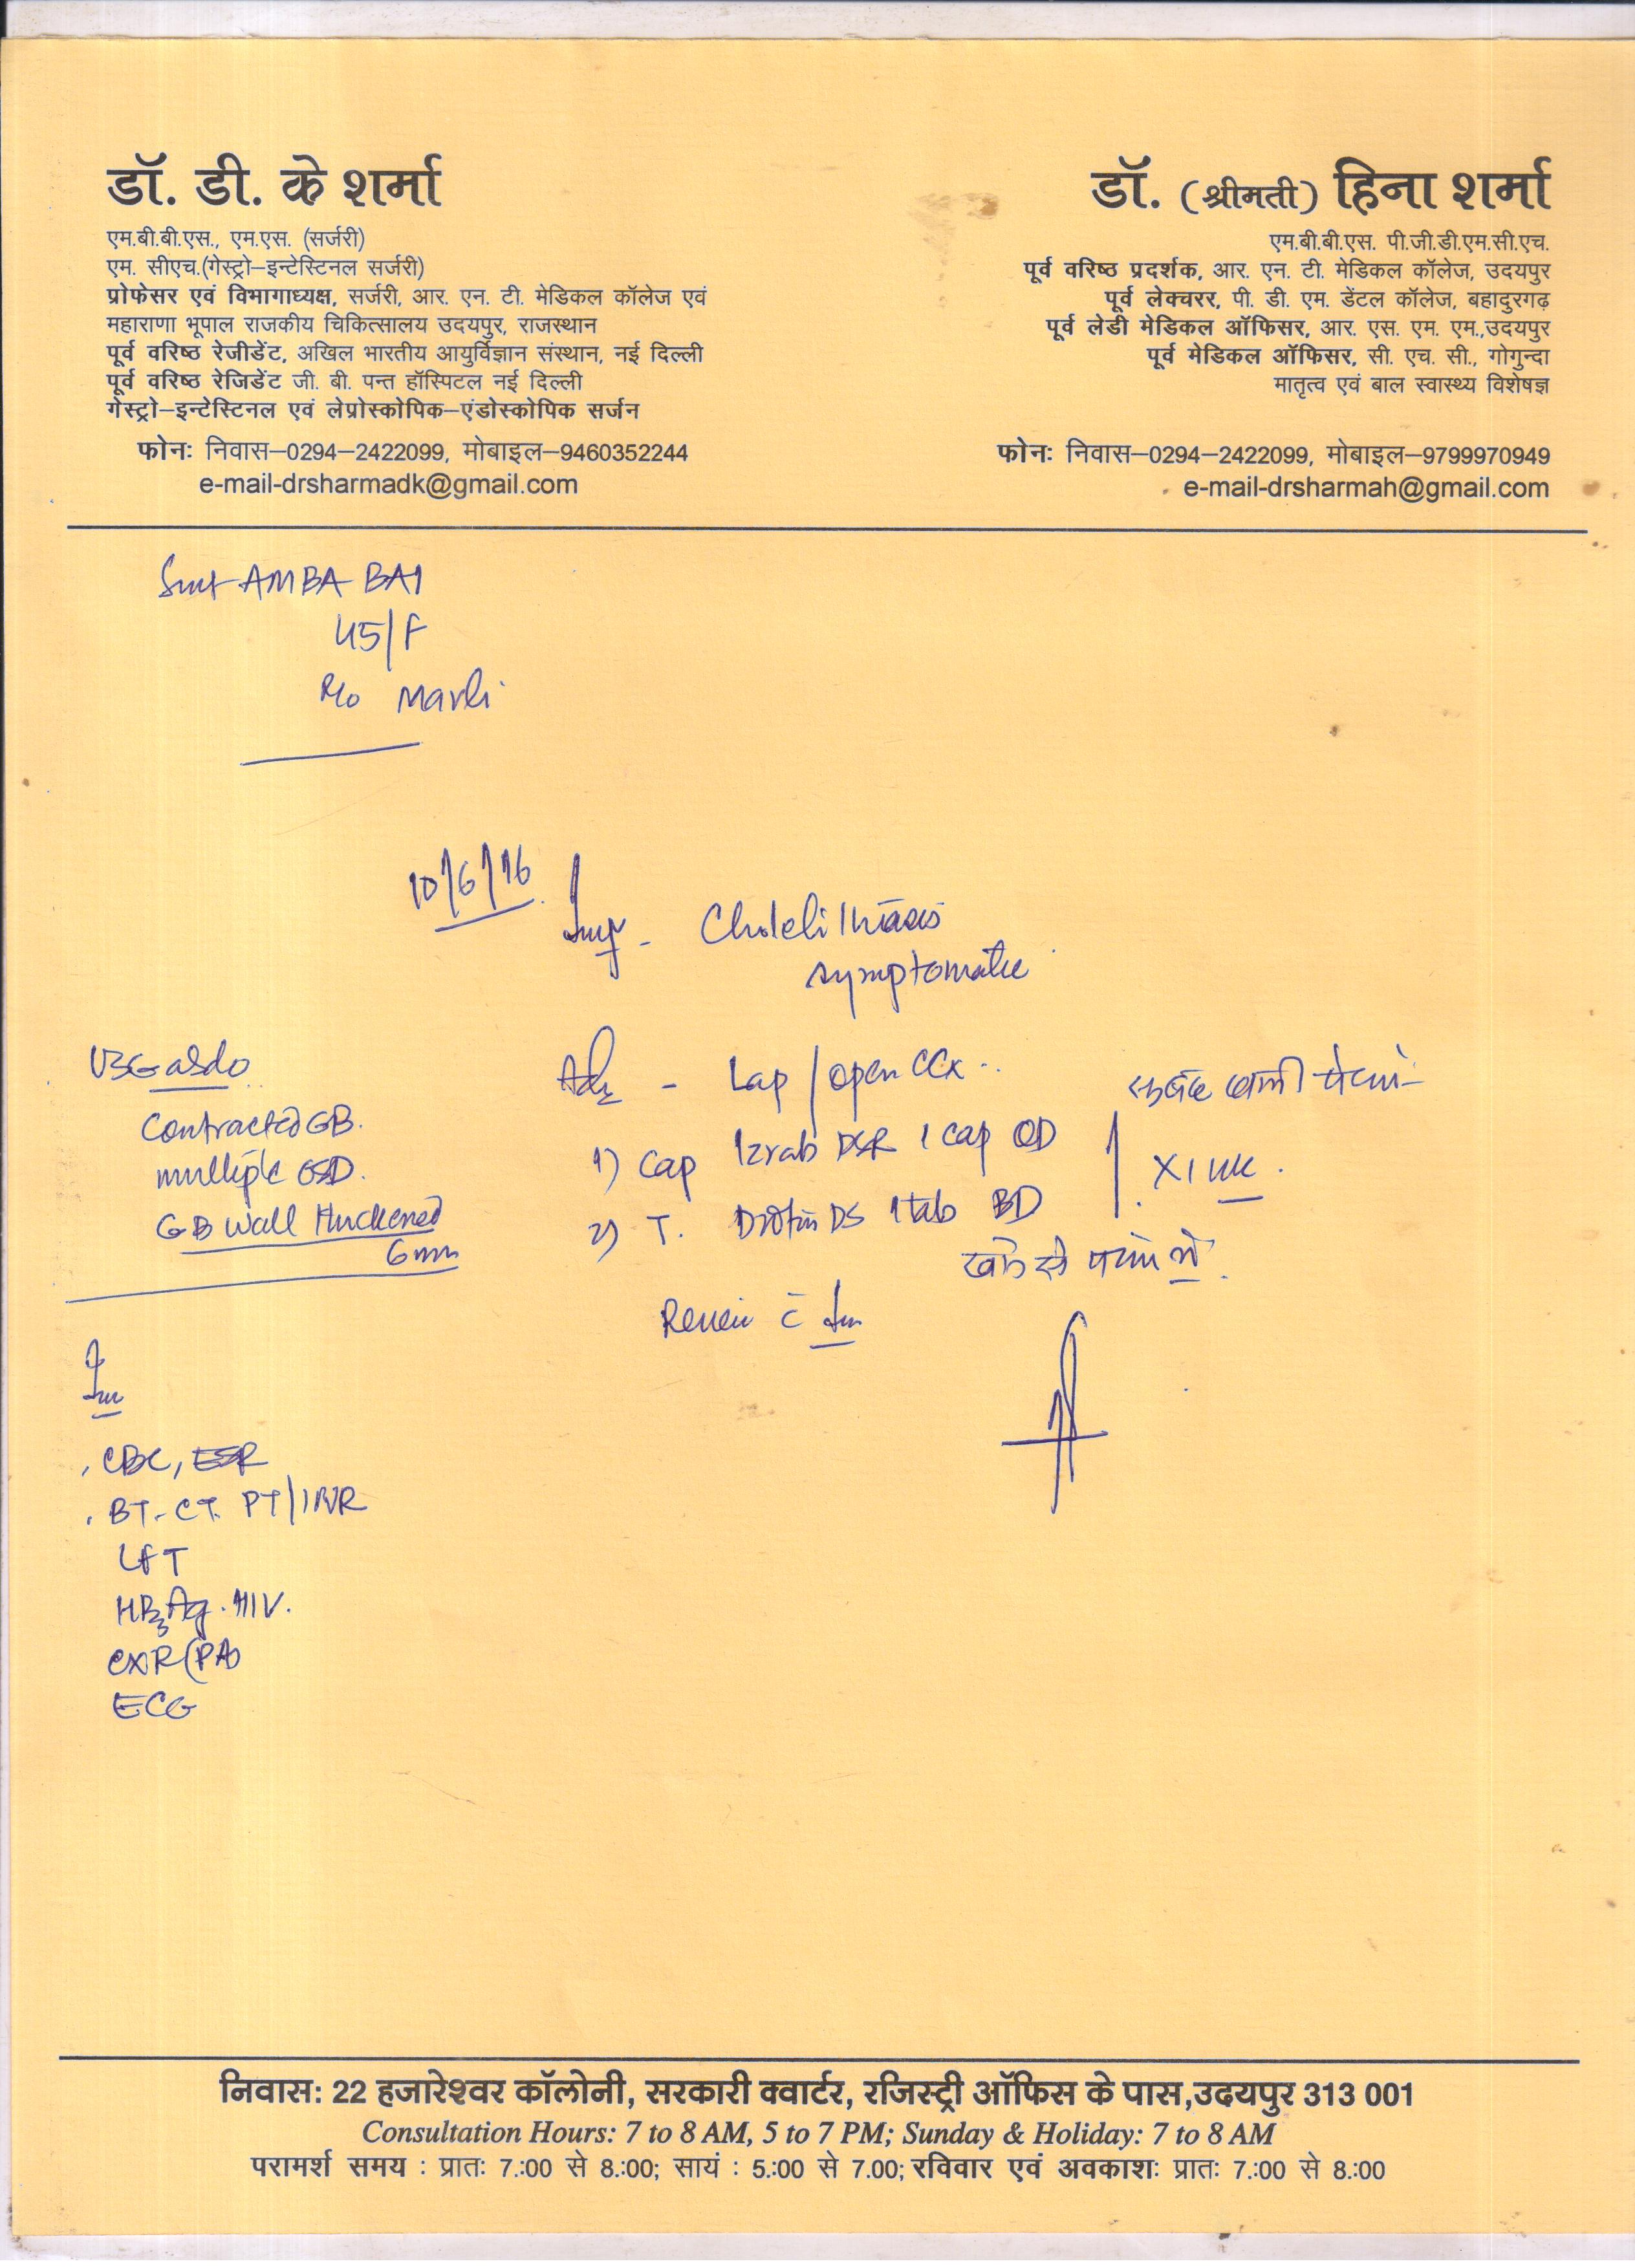 डॉ. डी. के शर्मा
एम.बी.बी.एस., एम.एस. (सर्जरी)
एम. सीएच.(गेस्ट्रो–इन्टेस्टिनल सर्जरी)
प्रोफेसर एवं विभागाध्यक्ष, सर्जरी, आर. एन. टी. मेडिकल कॉलेज एवं
महाराणा भूपाल राजकीय चिकित्सालय उदयपुर, राजस्थान
पूर्व वरिष्ठ रेजीडेंट, अखिल भारतीय आयुर्विज्ञान संस्थान, नई दिल्ली
पूर्व वरिष्ठ रेजिडेंट जी. बी. पन्त हॉस्पिटल नई दिल्ली
गेस्ट्रो–इन्टेस्टिनल एवं लेप्रोस्कोपिक–एंडोस्कोपिक सर्जन
फोनः निवास–0294–2422099, मोबाइल–9460352244
e-mail-drsharmadk@gmail.com
डॉ. (श्रीमती) हिना शर्मा
एम.बी.बी.एस. पी.जी.डी.एम.सी.एच.
पूर्व वरिष्ठ प्रदर्शक, आर. एन. टी. मेडिकल कॉलेज, उदयपुर
पूर्व लेक्चरर, पी. डी. एम. डेंटल कॉलेज, बहादुरगढ़
पूर्व लेडी मेडिकल ऑफिसर, आर. एस. एम. एम.,उदयपुर
पूर्व मेडिकल ऑफिसर, सी. एच. सी., गोगुन्दा
मातृत्व एवं बाल स्वास्थ्य विशेषज्ञ
फोनः निवास–0294–2422099, मोबाइल–9799970949
e-mail-drsharmah@gmail.com
Smt AMBA BAI
45/F
R/o
10/6/16
Imp - Cholelithiasis
symptomatic
USG abdo
Contracted GB.
multiple GSD.
GB wall thickened
6mm
Adv - Lap / open CCx
1) Cap Izrab DSR 1 cap OD
2) T. Drotin DS 1 tab BD
X 1 wk.
Review c̄ Inv
Inv
CBC, ESR
BT. CT. PT/INR
LFT
HBsAg. HIV.
CXR (PA)
ECG
निवास: 22 हजारेश्वर कॉलोनी, सरकारी क्वार्टर, रजिस्ट्री ऑफिस के पास,उदयपुर 313 001
Consultation Hours: 7 to 8 AM, 5 to 7 PM; Sunday & Holiday: 7 to 8 AM
परामर्श समय : प्रातः 7.:00 से 8.:00; सायं : 5.:00 से 7.00; रविवार एवं अवकाशः प्रातः 7.:00 से 8.:00